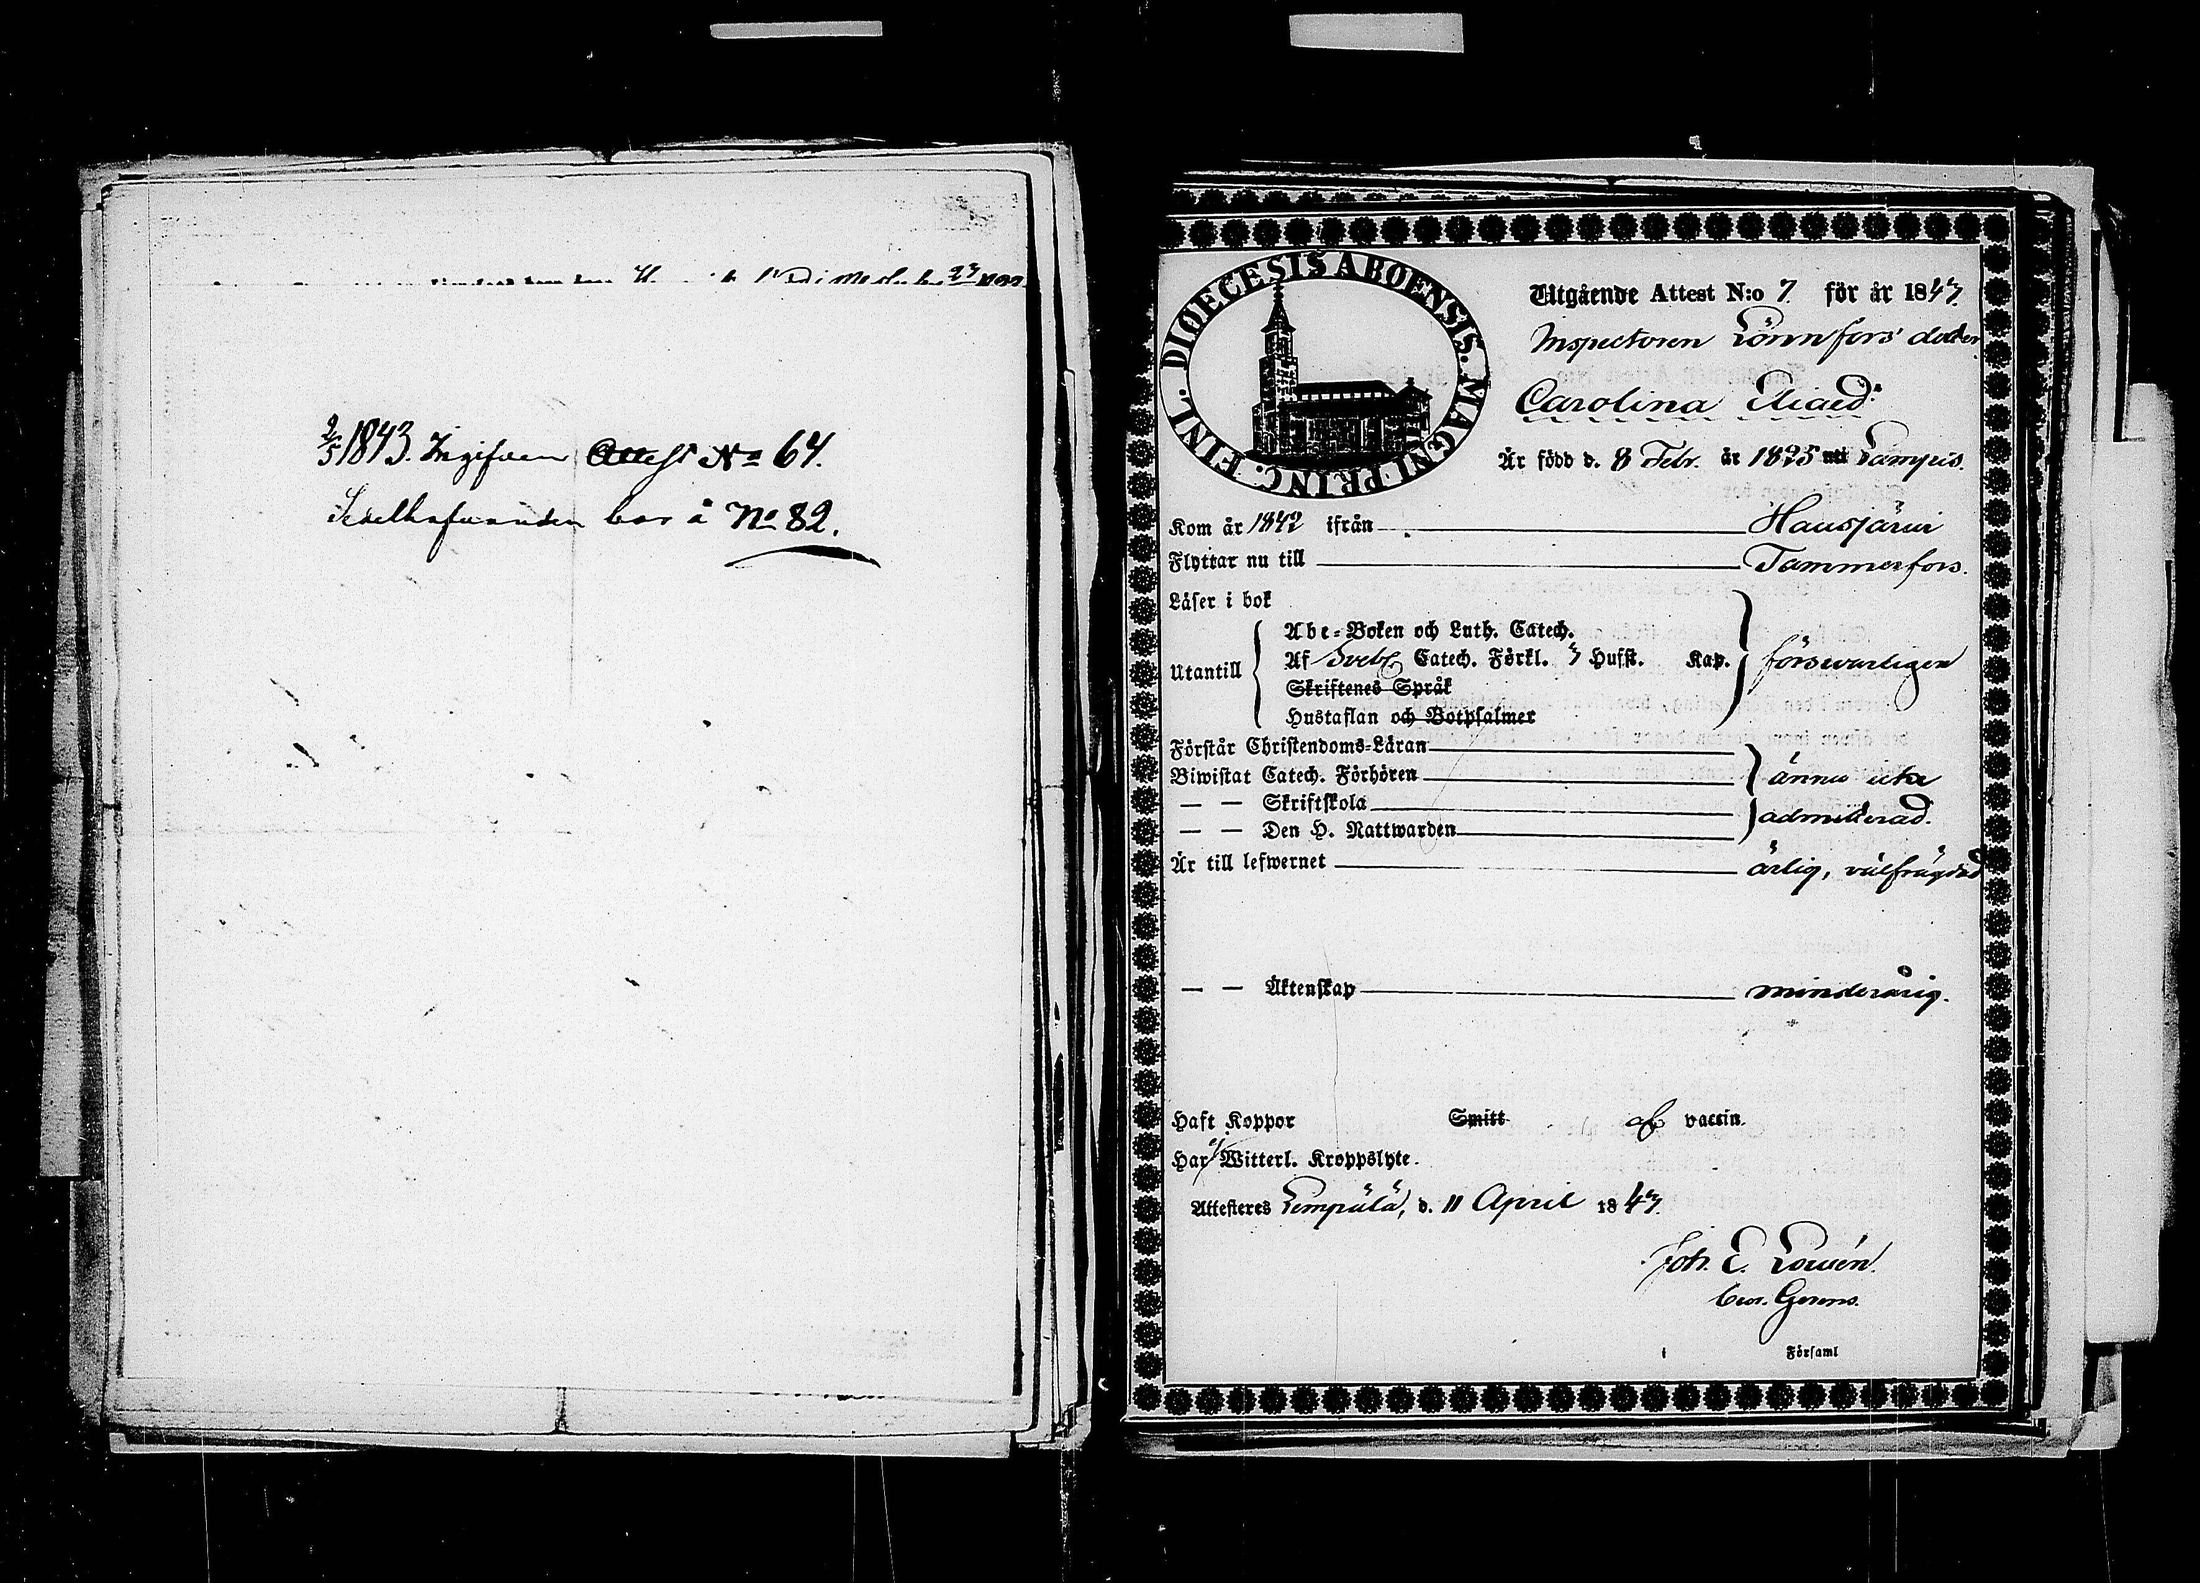 2/5 1843. Ingifven Attest No 64.
Sedelhafvanden bor å No 82.
DIOECESIS ABOENSIS. MAGNI PRINC. FINL.
Utgående Attest N:o 7 för år 1843.
Inspectoren Lönnfors' dotter
Carolina
Är född d. 8 Febr. år 1825 uti Lampis.
Kom år 1842 ifrån Hausjärvi
Flyttar nu till Tammerfors.
Läser i bok
Abc-Boken och Luth. Catech.
Utantill Af Sveb. Catech. Förkl. 3 Hufst. Kap. försvarligen
Skriftenes Språk
Hustaflan och Botpsalmer
Förstår Christendoms-Läran
Biwistat Catech. Förhören ännu icke
— — Skriftskola admitterad.
— — Den H. Nattwarden
Är till lefwernet ärlig, välfrägdad
— — Äktenskap minderårig.
Haft Koppor Smitt af vaccin.
Har ej Witterl. Kroppslyte.
Attesteres Lempälä, d. 11 April 1843.
Joh. E.
i Församl